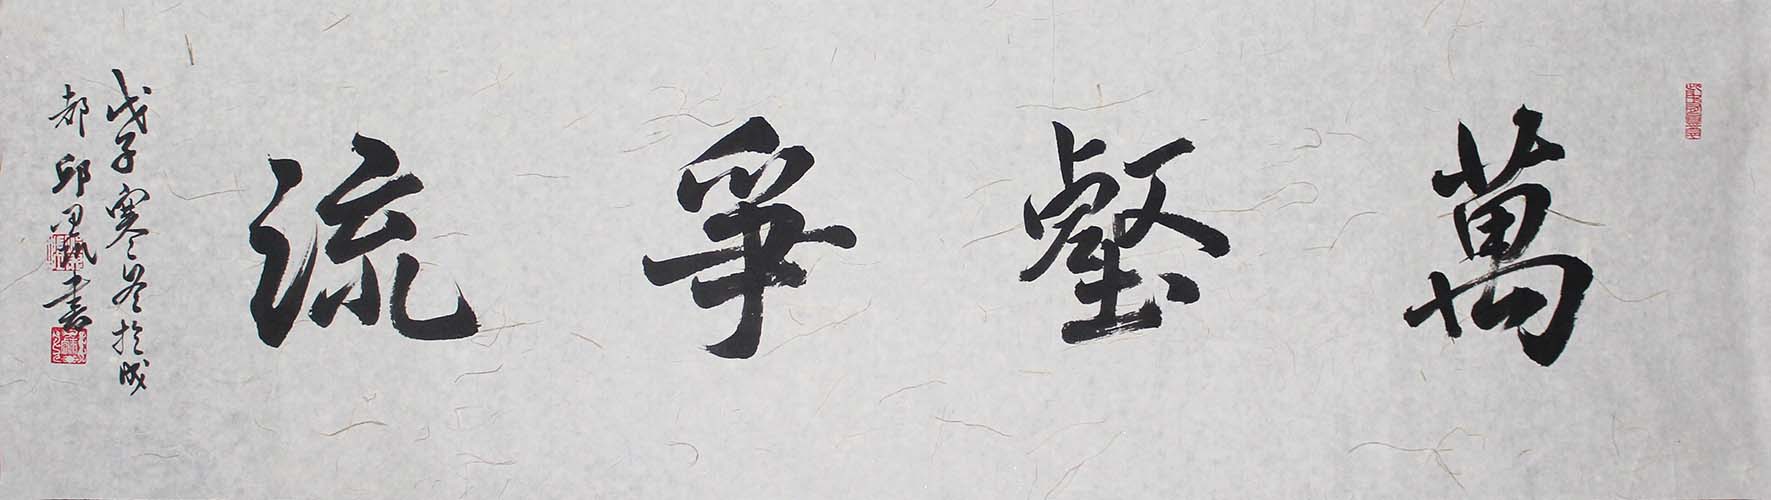 萬壑爭流
戊子寒冬於成
都邱書